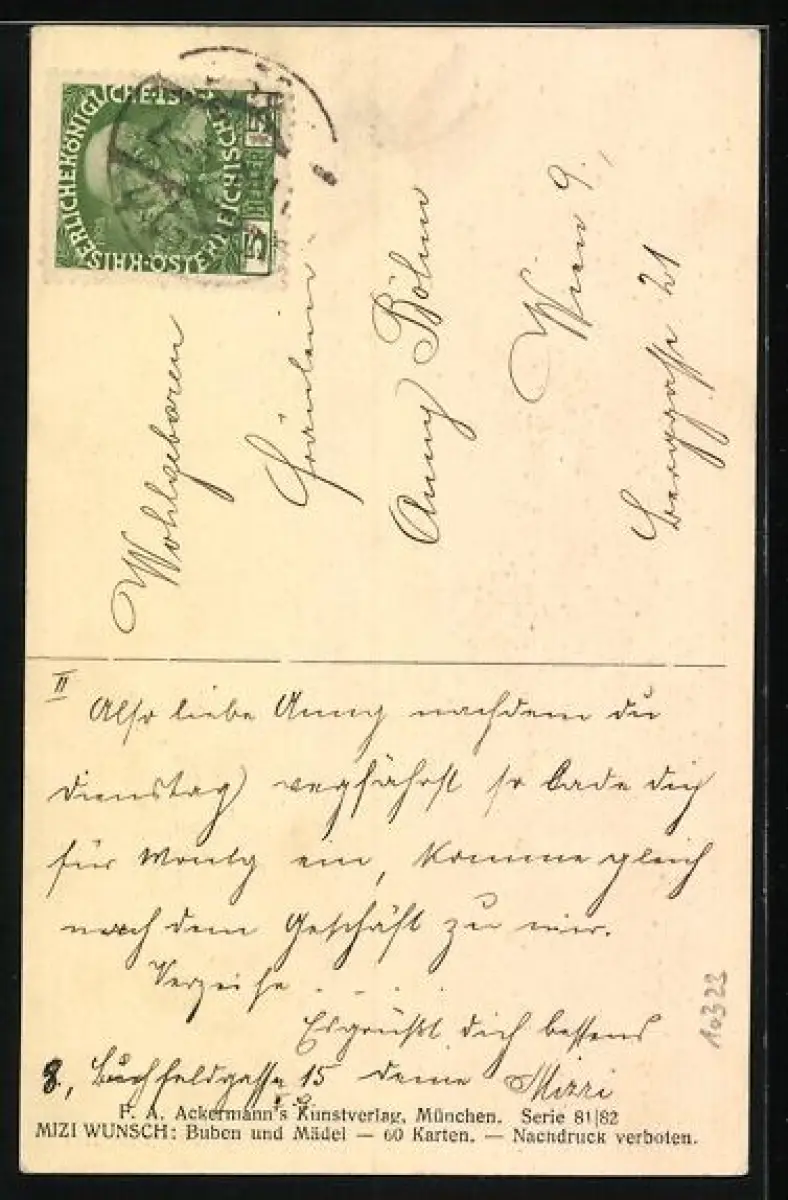 KAISERLICHE KÖNIGLICHE ÖSTERREICHISCHE
5 HELLER 5
Wohlgeboren
Fräulein
Anny Böhm
Wien 9.,
Berggasse 21
II
Also liebe Anny nachdem du
Dienstag wegfährst so lade dich
für Montg ein, komme gleich
nach dem Geschäft zu mir.
Verzeihe . . . .
Es grüßt dich bestens
8., Buchfeldgasse 15 deine Mizzi
10323
F. A. Ackermann's Kunstverlag, München. Serie 81|82
MIZI WUNSCH: Buben und Mädel — 60 Karten. — Nachdruck verboten.